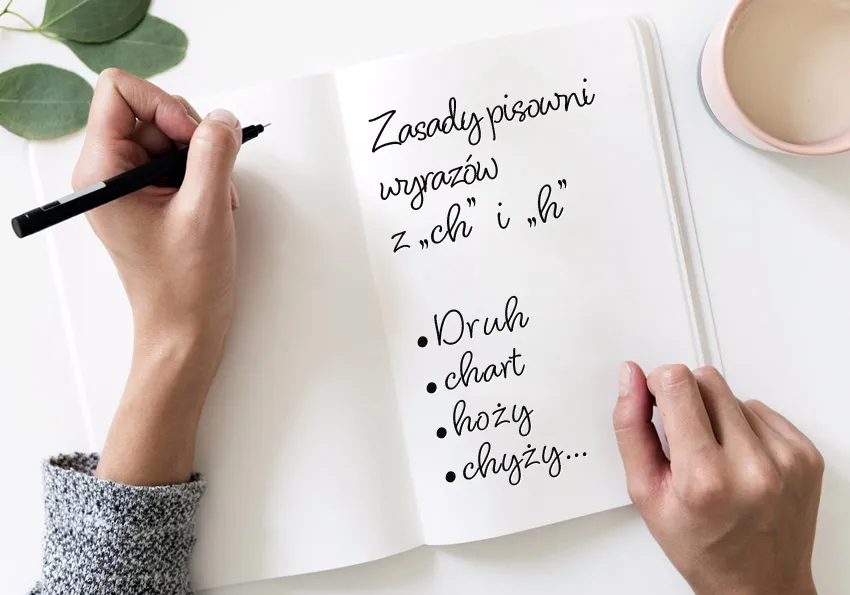 Zasady pisowni
wyrazów
z „ch” i „h”
• Druh
• chart
• hoży
• chyży...